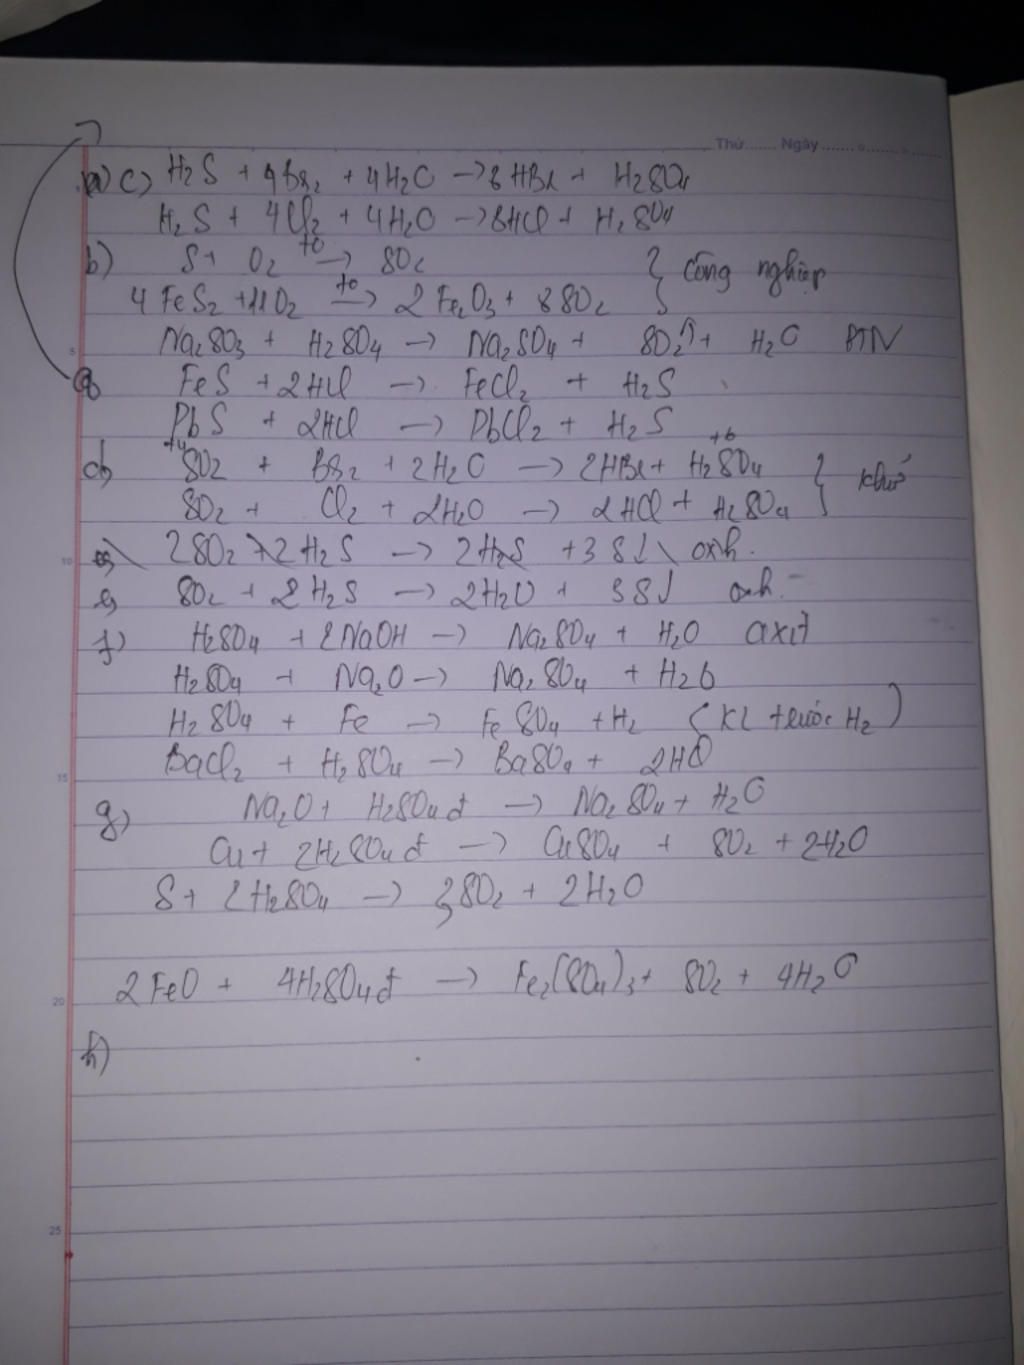 Thứ...... Ngày.......
a) c) H₂S + 4Br₂ + 4H₂O → 8HBr + H₂SO₄
H₂S + 4Cl₂ + 4H₂O → 8HCl + H₂SO₄
b) S + O₂ →(t°) SO₂ } công nghiệp
4FeS₂ + 11O₂ →(t°) 2Fe₂O₃ + 8SO₂
Na₂SO₃ + H₂SO₄ → Na₂SO₄ + SO₂↑ + H₂O PTN
5
a) FeS + 2HCl → FeCl₂ + H₂S
PbS + 2HCl → PbCl₂ + H₂S
+4 +6
d) SO₂ + Br₂ + 2H₂O → 2HBr + H₂SO₄ } khử
SO₂ + Cl₂ + 2H₂O → 2HCl + H₂SO₄
10
2SO₂ + 2H₂S → 2H₂S + 3S↓ oxh.
e) SO₂ + 2H₂S → 2H₂O + 3S↓ oxh.
f) H₂SO₄ + 2NaOH → Na₂SO₄ + H₂O axit
H₂SO₄ + Na₂O → Na₂SO₄ + H₂O
H₂SO₄ + Fe → FeSO₄ + H₂ (KL trước H₂)
BaCl₂ + H₂SO₄ → BaSO₄ + 2HCl
15
g) Na₂O + H₂SO₄đ → Na₂SO₄ + H₂O
Cu + 2H₂SO₄đ → CuSO₄ + SO₂ + 2H₂O
S + 2H₂SO₄ → 3SO₂ + 2H₂O
2FeO + 4H₂SO₄đ → Fe₂(SO₄)₃ + SO₂ + 4H₂O
20
h)
25